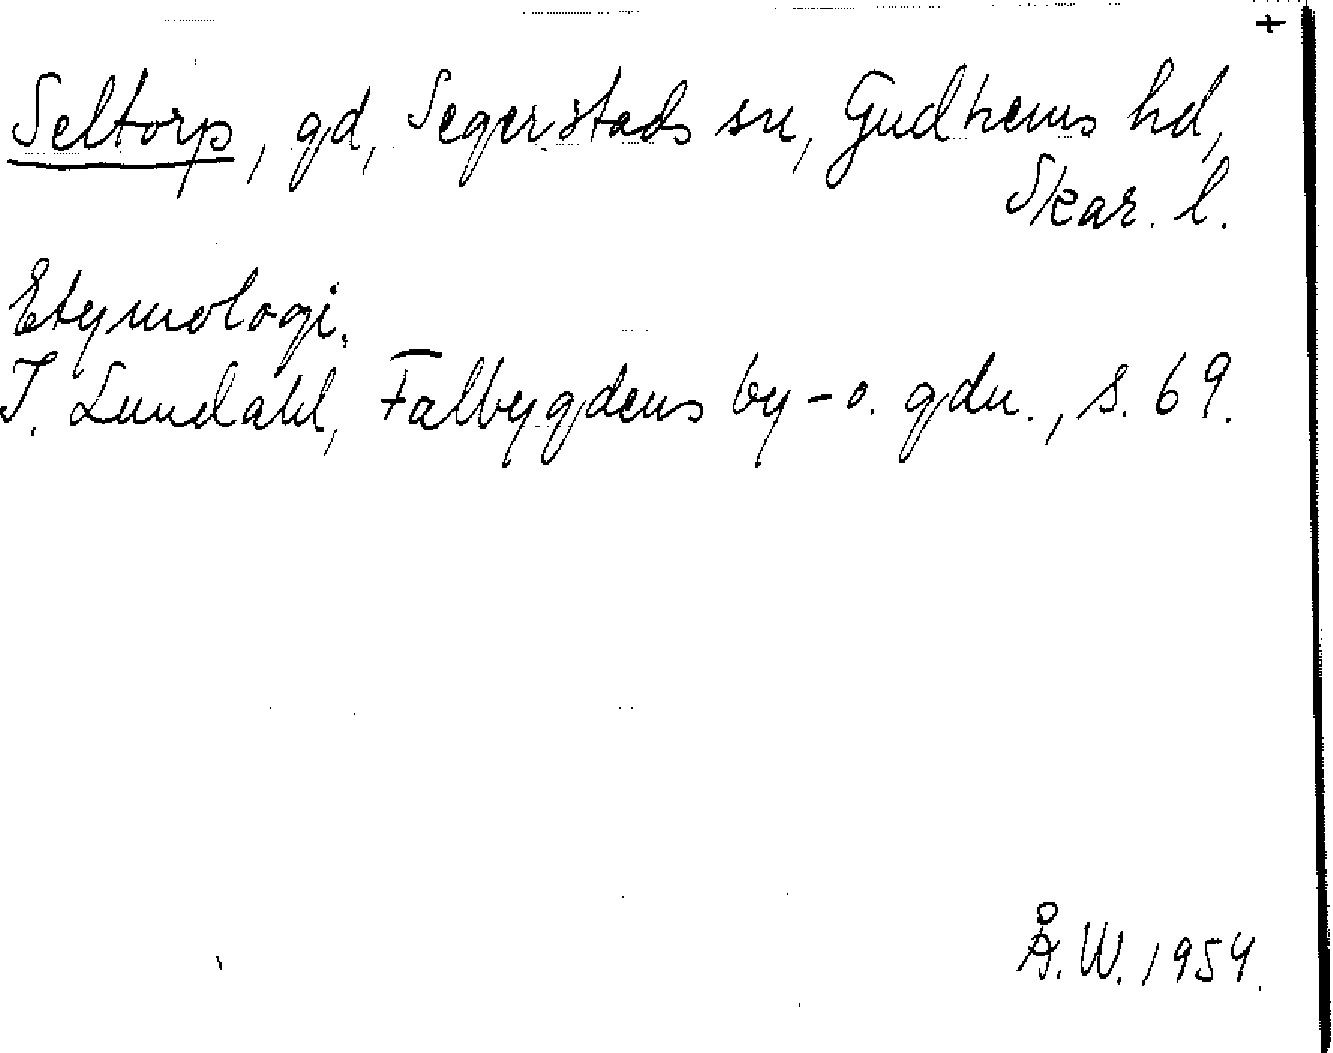 +
Seltorp, gd, Segerstads sn, Gudhems hd,
Skar. l.
Etymologi.
I. Lundahl, Falbygdens by- o. gdn., s. 69.
Å. W. 1954.